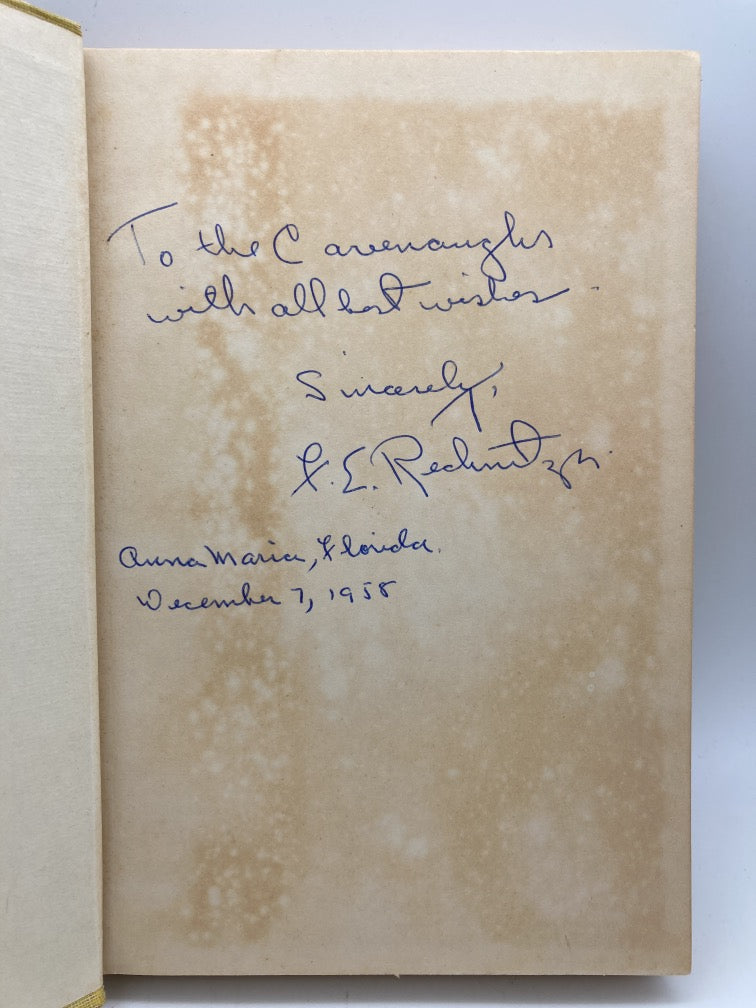 To the Cavenaughs
with all best wishes.
Sincerely,
F. E. Rechnitzer.
Anna Maria, Florida.
December 7, 1958